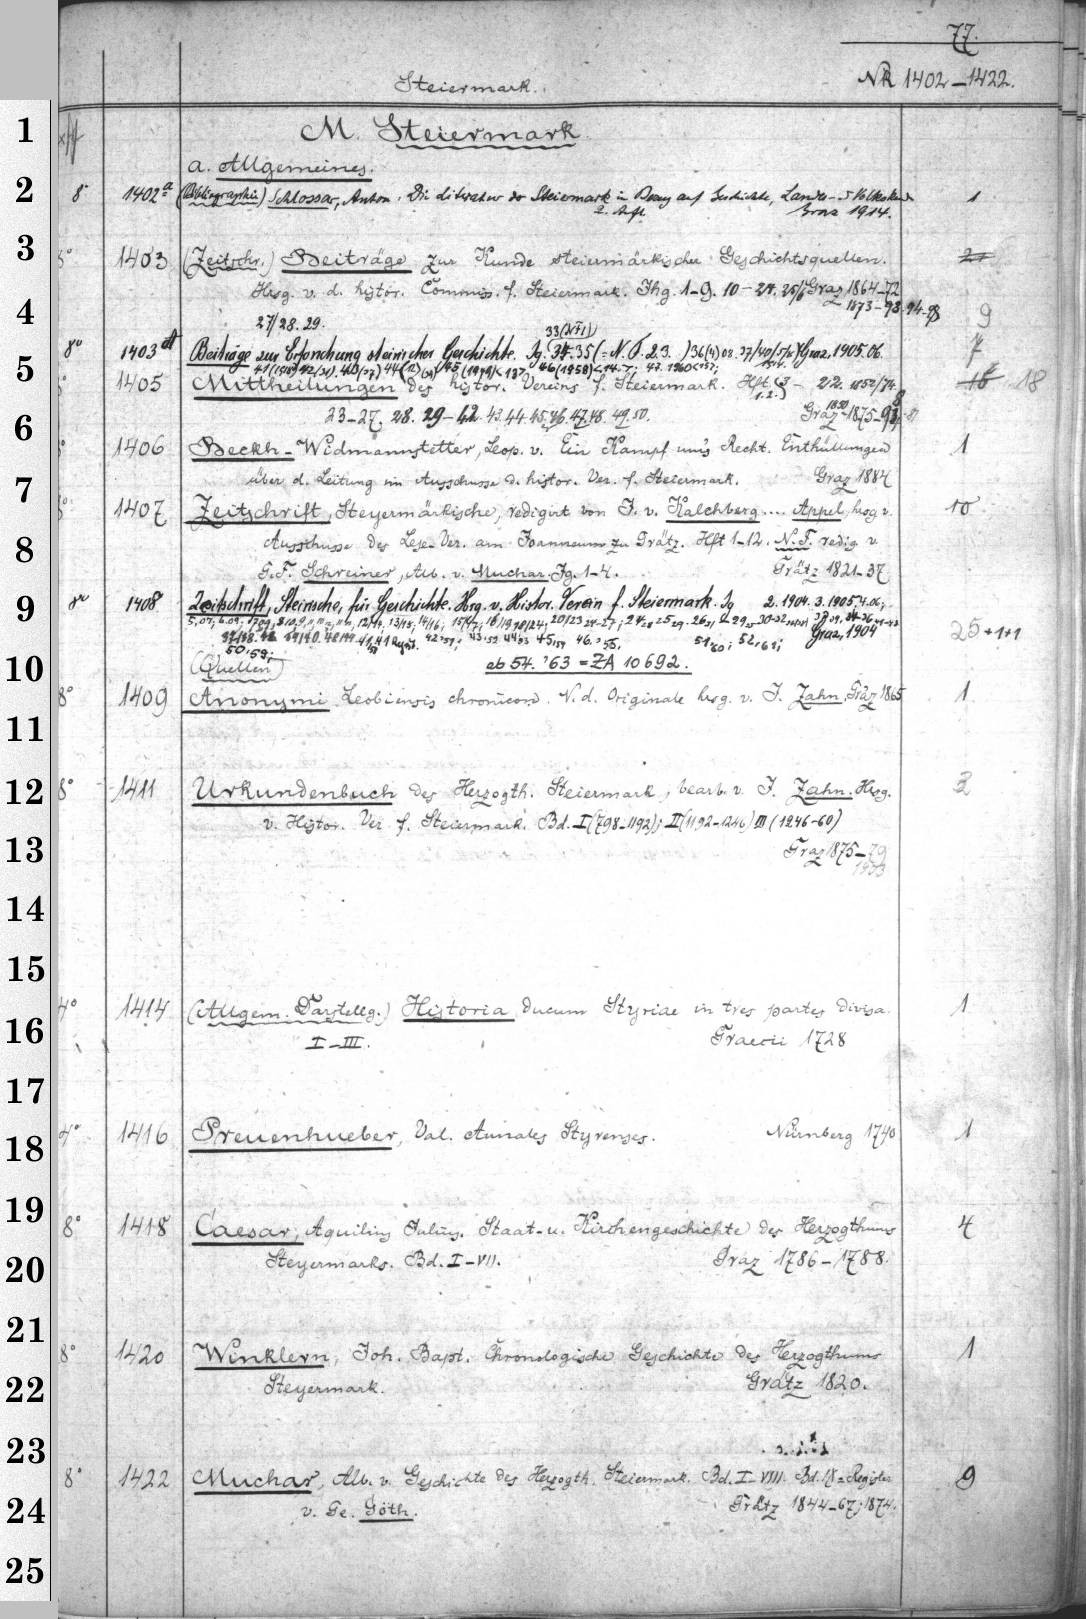 77.
Steiermark.
NR 1402–1422.
1
M. Steiermark.
a. Allgemeines.
2
8° 1402a (Bibliographie) Schlossar, Anton. Die Literatur der Steiermark in Bezug auf Geschichte, Landes- u. Volkskunde 1
2. Aufl. Graz 1914.
3
1403 (Zeitschr.) Beiträge zur Kunde steiermärkischer Geschichtsquellen.
Hrsg. v. d. histor. Commiss. f. Steiermark. Jhg. 1–9. 10– 24. 25/6 Graz 1864–72
4
1873–93. 94–98 9
27/28. 29.
33 (XVI)
8° 1403 Beiträge zur Erforschung steirischer Geschichte. Jg. 34. 35 (=N. F. 2.3. ) 36(4) 08. Graz, 1905.06. 7
5
1405 Mittheilungen des histor. Vereins f. Steiermark. Hft. 1.2. 3 – 22. 1850/74. 18
23–27. 28. 29–42. 43. 44. 45. 46. 47. 48. 49. 50. Graz 1850 1875–93
6
1406 Beckh-Widmannstetter, Leop. v. Ein Kampf um's Recht. Enthüllungen 1
über d. Leitung im Ausschusse d. histor. Ver. f. Steiermark. Graz 1884
7
1407 Zeitschrift, Steyermärkische, redigirt von J. v. Kalchberg .... Appel, hrsg v. 10
8
Ausschusse des Lese-Ver. am Joanneum zu Grätz. Hft 1–12. N. F. redig v.
G. F. Schreiner, Alb. v. Muchar. Jg. 1–4. Grätz 1821–37
9
1408 Zeitschrift, Steirische, für Geschichte. Hrg. v. Histor. Verein f. Steiermark. Jg 2. 1904. 3. 1905. 4. 06;
Graz, 1904 25+1+1
50,59;
10
(Quellen) ab 54. '63 = ZA 10692.
8° 1409 Anonymi Leobiensis chronicon. N. d. Originale hrsg. v. J. Zahn. Graz 1865 1
11
12
8° 1411 Urkundenbuch des Herzogth. Steiermark, bearb. v. J. Zahn. Hrsg. 3
v. Histor. Ver. f. Steiermark. Bd. I (798–1192); II (1192–1246) III (1246–60)
13
Graz 1875–79
1903
14
15
4° 1414 (Allgem. Darstellg.) Historia ducum Styriae in tres partes divisa. 1
16
I–III. Graecii 1728
17
4° 1416 Preuenhueber, Val. Annales Styrenses. Nürnberg 1740 1
18
19
8° 1418 Caesar, Aquilins Julius. Staat- u. Kirchengeschichte des Herzogthums 4
20
Steyermarks. Bd. I–VII. Graz 1786–1788.
21
8° 1420 Winklern, Joh. Bapt. Chronologische Geschichte des Herzogthums 1
22
Steyermark. Grätz 1820.
23
8° 1422 Muchar, Alb. v. Geschichte des Herzogth. Steiermark. Bd. I–VIII. Bd. IX = Register 9
24
v. Ge. Göth. Grätz 1844–67; 1874.
25